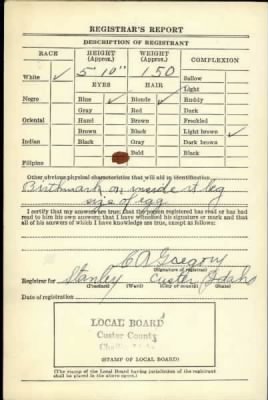 REGISTRAR'S REPORT
DESCRIPTION OF REGISTRANT
RACE HEIGHT (Approx.) WEIGHT (Approx.) COMPLEXION
White ✓ 5' 10" 150 Sallow
EYES HAIR Light
Negro Blue ✓ Blonde ✓ Ruddy
Gray Red Dark
Oriental Hazel Brown Freckled
Brown Black Light brown ✓
Indian Black Gray Dark brown
Bald Black
Filipino
Other obvious physical characteristics that will aid in identification
Birthmark on inside of leg
size of egg
I certify that my answers are true; that the person registered has read or has had
read to him his own answers; that I have witnessed his signature or mark and that
all of his answers of which I have knowledge are true, except as follows:
Gregory
(Signature of registrar)
Registrar for Stanley Custer Idaho
(Precinct) (Ward) (City or county) (State)
Date of registration
LOCAL BOARD
Custer County
(STAMP OF LOCAL BOARD)
(The stamp of the Local Board having jurisdiction of the registrant
shall be placed in the above space.)